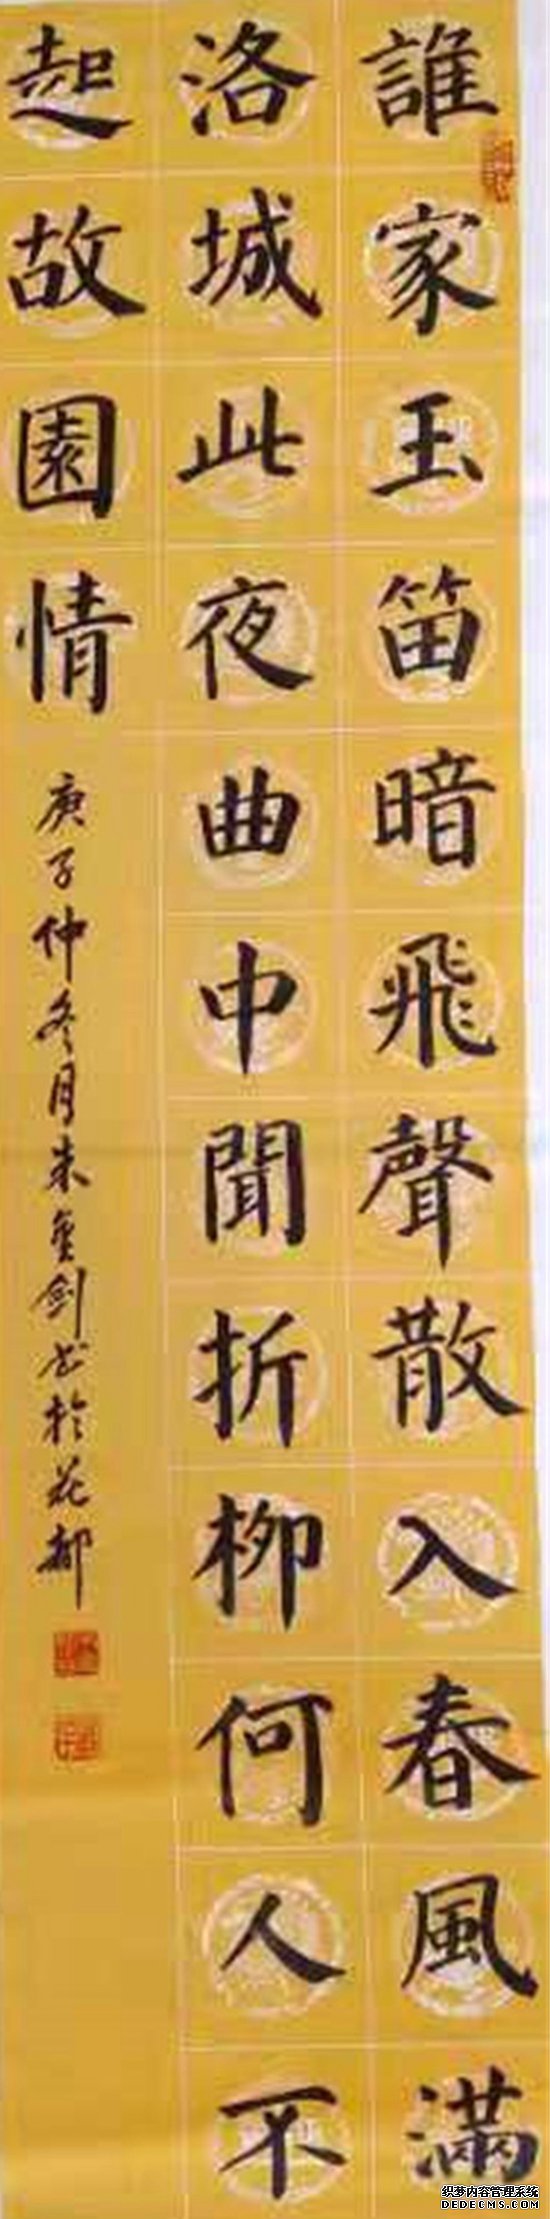 誰家玉笛暗飛聲散入春風滿
洛城此夜曲中聞折柳何人不
起故園情
庚子仲冬月朱金剑书於花都
织梦内容管理系统
DEDECMS.COM